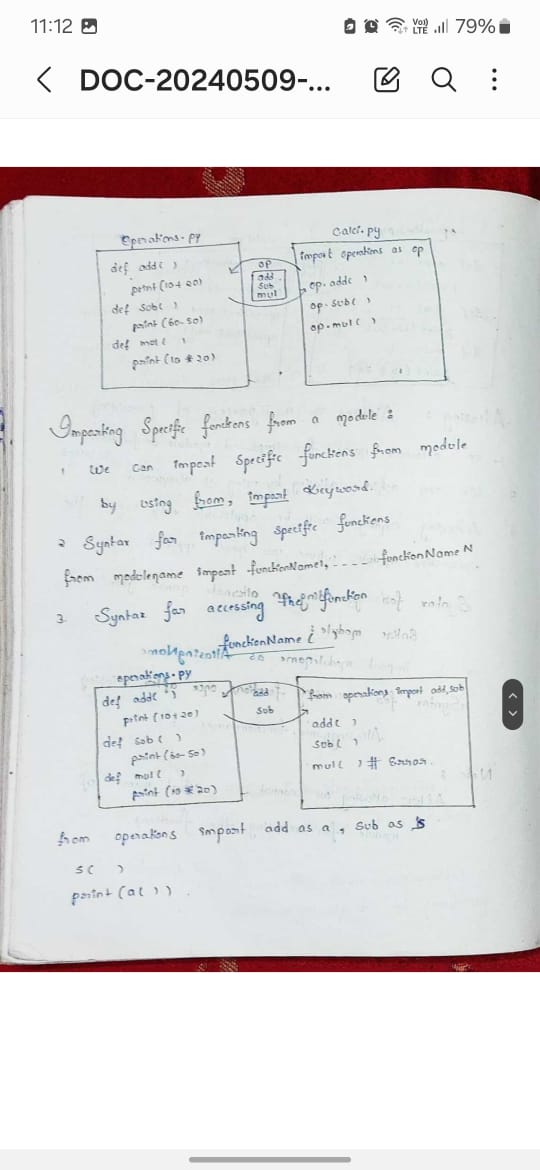 11:12
Vo)) LTE 79%
DOC-20240509-...
Operations.py
def add( )
print (10+20)
def Sub( )
print (60-50)
def mul( )
print (10 * 20)
op
add
Sub
mul
Calci.py
import operations as op
op.add( )
op.sub( )
op.mul( )
Importing Specific functions from a module :
1 we can import specific functions from module
by using from, import keyword.
2 Syntax for importing specific functions
from modulename import functionName1, - - - - functionName N
3. Syntax for accessing the function
functionName
operations.py
def add( )
print (10+20)
def sub( )
print (60-50)
def mul( )
print (10 * 20)
add
Sub
from operations import add, sub
add( )
sub( )
mul( ) # Error.
from operations import add as a, Sub as s
s( )
print (a( )).